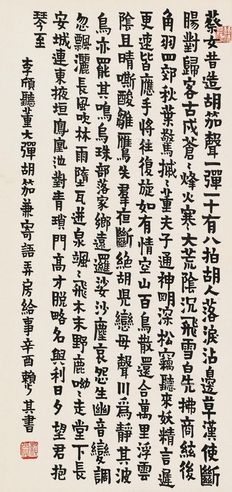 蔡女昔造胡笳聲一彈一十有八拍胡人落淚沾邊草漢使斷
腸對歸客古戍蒼〻烽火寒大荒陰沉飛雪白先拂商絃後
角羽四郊秋葉驚摵〻董夫子通神明深松竊聽來妖精言遲
更速皆應手將往復旋如有情空山百鳥散還合萬里浮雲
陰且晴嘶酸雛雁失羣夜斷絕胡兒戀母聲川爲靜其波
鳥亦罷其鳴烏珠部落家鄉遠邏娑沙塵哀怨生幽音變調
忽飄灑長風吹林雨墮瓦迸泉颯〻飛木末野鹿呦〻走堂下長
安城連東掖垣鳳凰池對青瑣門高才脫略名與利日夕望君抱
琴至 李頎聽董大彈胡笳兼寄語弄房給事辛酉賴少其書